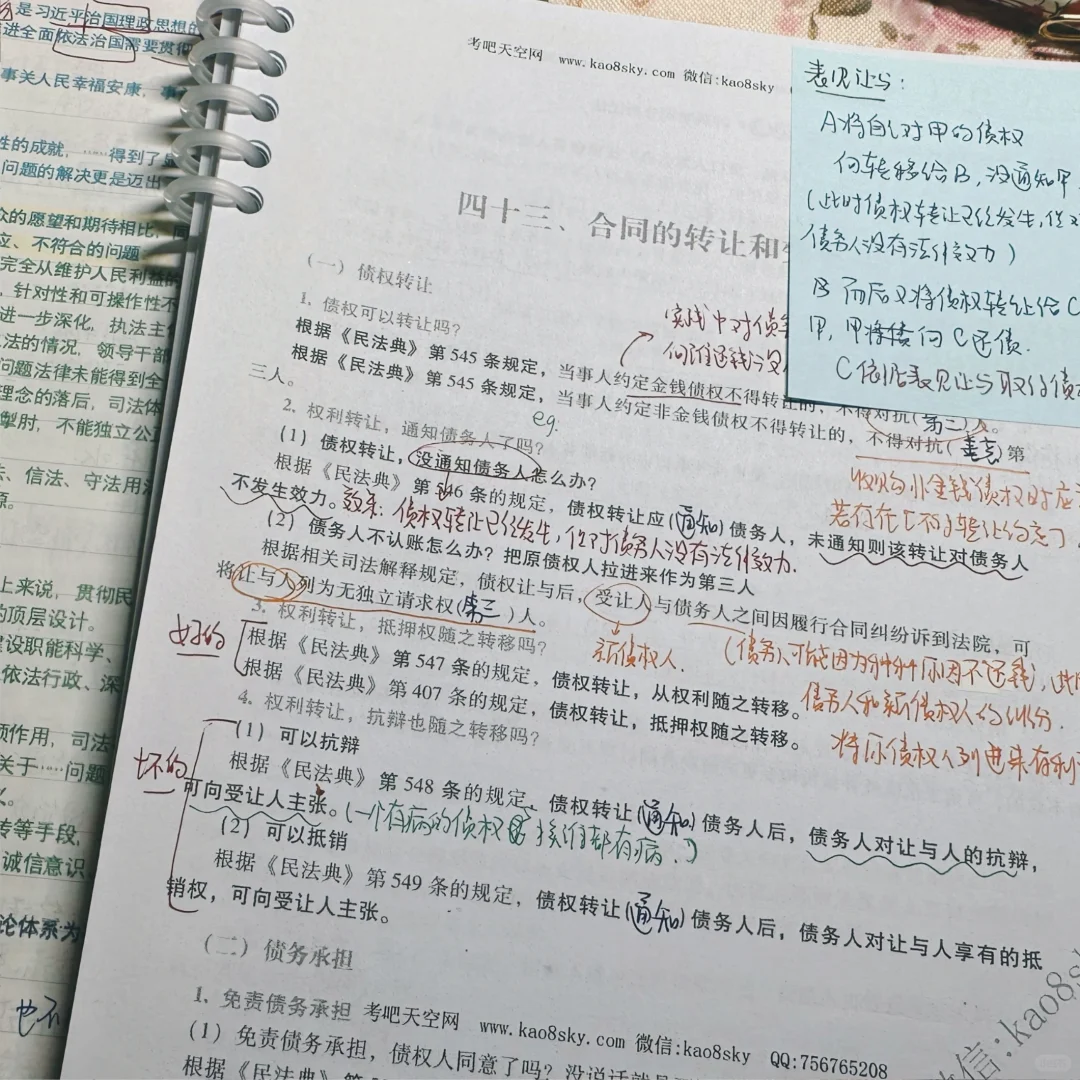 是习近平治国理政思想的
进全面依法治国需要贯彻
事关人民幸福安康，事
性的成就，……得到了
问题的解决更是迈出
众的愿望和期待相比，
应、不符合的问题
完全从维护人民利益的
，针对性和可操作性不
进一步深化，执法主
法的情况，领导干部
问题法律未能得到全
理念的落后，司法体
掣肘，不能独立公正
法、信法、守法用法
上来说，贯彻民
的顶层设计。
建设职能科学、
依法行政、深
项作用，司法
关于……问题
传等手段，
诚信意识
论体系为
考吧天空网 www.kao8sky.com 微信:kao8sky
四十三、合同的转让和
（一）债权转让
1. 债权可以转让吗？
根据《民法典》第 545 条规定，当事人约定金钱债权不得转让的，不得对抗(第三)人。
根据《民法典》第 545 条规定，当事人约定非金钱债权不得转让的，不得对抗(善意)第
三人。
eg:
2. 权利转让，通知债务人了吗？
（1）债权转让，没通知债务人怎么办？
根据《民法典》第 546 条的规定，债权转让应(通知)债务人，未通知则该转让对债务人
不发生效力。效果: 债权转让已经发生，但对债务人没有法律效力.
（2）债务人不认账怎么办？把原债权人拉进来作为第三人
根据相关司法解释规定，债权让与后，受让人与债务人之间因履行合同纠纷诉到法院，可
将让与人列为无独立请求权(第三)人。
新债权人.
(债务人可能因为种种原因不还钱,
债务人和新债权人的纠纷.
将原债权人列进来有利
3. 权利转让，抵押权随之转移吗？
好的
根据《民法典》第 547 条的规定，债权转让，从权利随之转移。
根据《民法典》第 407 条的规定，债权转让，抵押权随之转移。
4. 权利转让，抗辩也随之转移吗？
坏的
（1）可以抗辩
根据《民法典》第 548 条的规定，债权转让(通知)债务人后，债务人对让与人的抗辩，
可向受让人主张。(一个有病的债权 换谁都有病.)
（2）可以抵销
根据《民法典》第 549 条的规定，债权转让(通知)债务人后，债务人对让与人享有的抵
销权，可向受让人主张。
（二）债务承担
1. 免责债务承担 考吧天空网 www.kao8sky.com 微信:kao8sky QQ:756765208
（1）免责债务承担，债权人同意了吗？没说话就是
根据《民法典》第
表见让与:
A将自己对甲的债权
转移给B，没通知甲，
(此时债权转让已经发生，但对
债务人没有法律效力)
B 而后又将债权转让给C
甲，甲将债向C还债.
C依据表见让与取得债
实践中对债
信:kao8sky